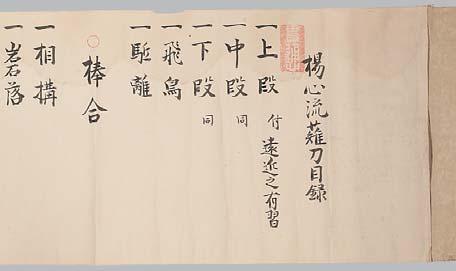 楊心流薙刀目録
一上段 付 遠近之有習
一中段 同
一下段 同
一飛鳥
一駈離
棒合
一相搆
一岩石落